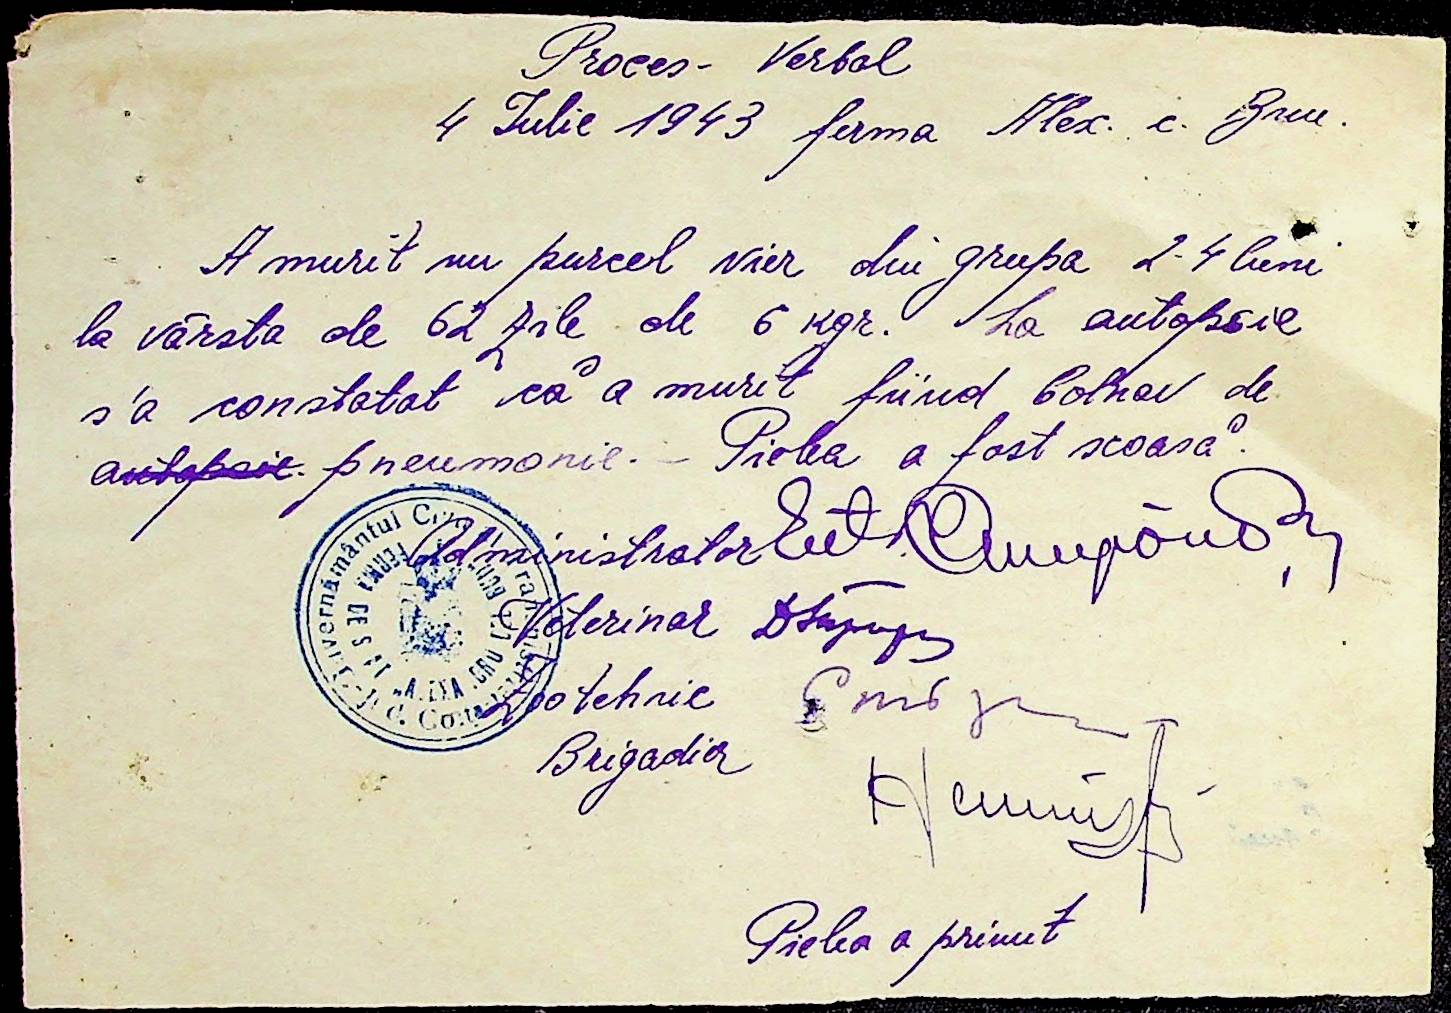 Proces- Verbal
4 Iulie 1943 ferma Alex. c. Bun.
A murit un purcel vier din grupa 2-4 luni
la vârsta de 62 zile de 6 kgr. La autopsie
s'a constatat că a murit fiind bolnav de
autopsie. pneumonie. - Pielea a fost scoasă.
Administrator
Veterinar
Zootehnic
Brigadier
Pielea a primit